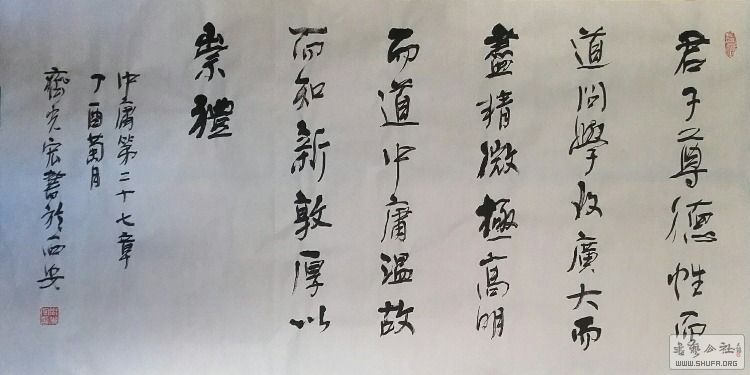 君子尊德性而
道問學致廣大而
盡精微極高明
而道中庸溫故
而知新敦厚以
崇禮
中庸第二十七章
丁酉菊月
齊光宏書於西安
書藝公社
WWW.SHUFA.ORG